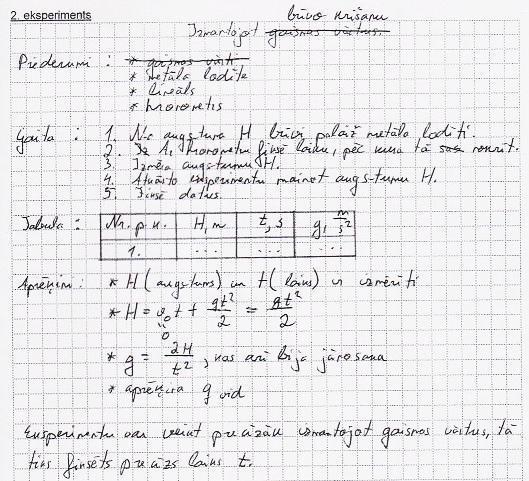 2. eksperiments
brīvo krišanu
Izmantojot gaismas vārtus.
Piederumi : * gaismas vārti
* metāla lodīte
* lineāls
* hronometrs
Gaita : 1. No augstuma H brīvi palaiž metāla lodīti.
2. Ar hronometru fiksē laiku, pēc kura tā nokrīt.
3. Izmēra augstumu H.
4. Atkārto eksperimentu mainot augstumu H.
5. Fiksē datus.
Tabula : Nr. p. k. H, m t, s g, m/s²
1. ... ... ...
Aprēķini : * H (augstums) un t (laiks) ir izmērīti
* H = v₀t + gt²/2 = gt²/2
0
* g = 2H/t², kas arī bija jāatrod
* aprēķina g vid
Eksperimentu var veikt precīzāk izmantojot gaismas vārtus, tā
tiks fiksēts precīzs laiks t.